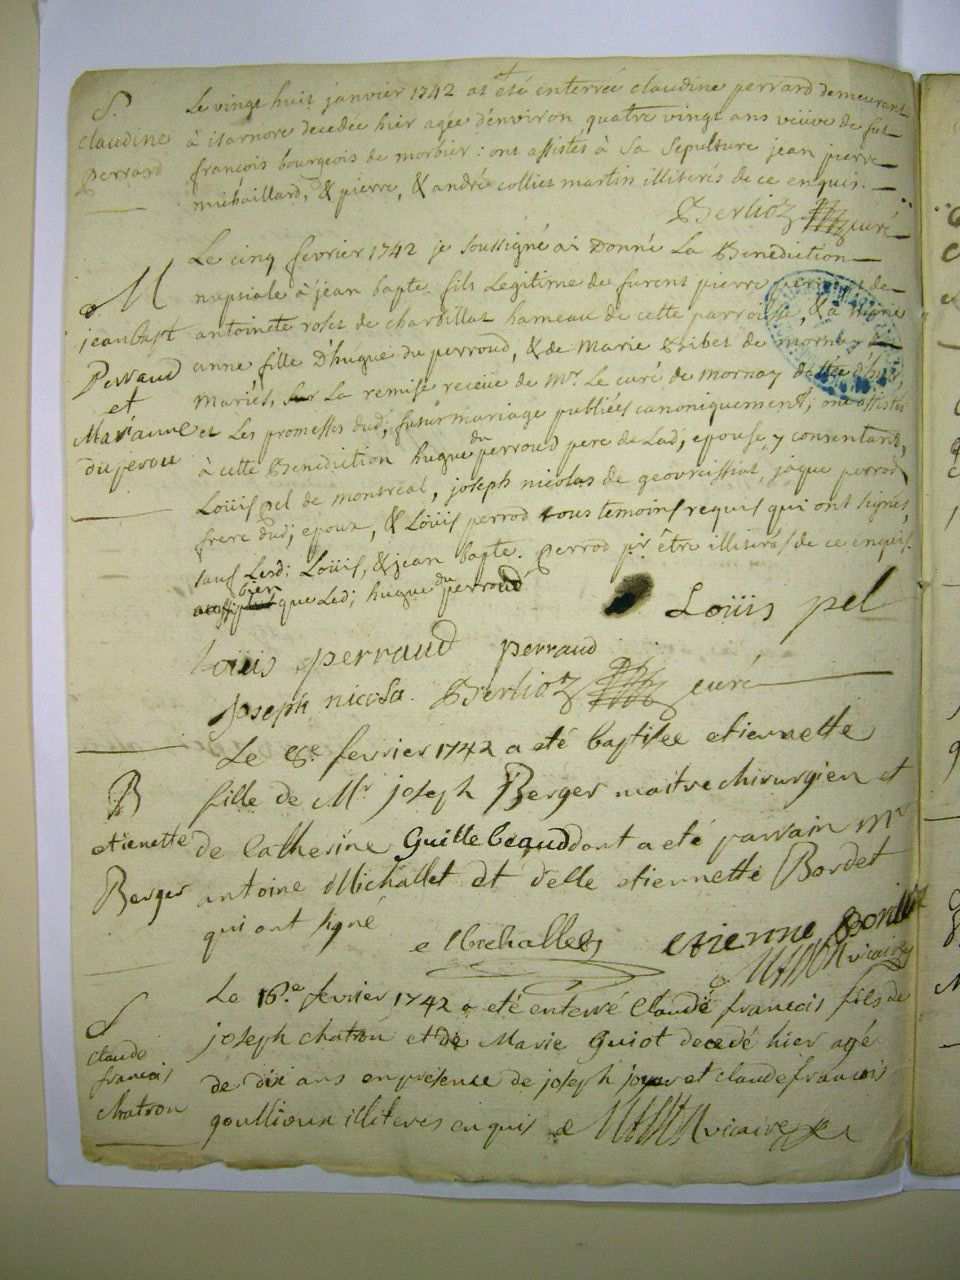 S.
claudine
perrard
Le vingt huit janvier 1742 at été enterrée claudine perrard demeurant
à isarnore decedée hier agée d'environ quatre vingt ans veüve de fut
françois bourgeois de morbier : ont assistés à sa sepulture jean pierre
michaillard, & pierre, & andré colliet martin illiterés de ce enquis.
Berlioz curé
M
jean bapt
Perraud
et
Mar anne
du perou
Le cinq fevrier 1742 je soussigné ai Donné La Benediction
nupsiale à jean bapte fils Legitime de furent pierre de
antoinete rolet de charbillat hameau de cette parroisse, & à
anne fille D'hugue du perroud, & de Marie de mornay
mariés, sur La remise receüe de Mr. Le curé de mornay
et Les promesses dud; futur mariage publiées canoniquement; ont assistés
à cette Benediction hugue du perroud pere de Lad; epouse y consentant,
Loüis pel de montréal, joseph nicolas de geovreissiat, jaque perrod
frere dud; epoux, & Loüis perrod tous temoins requis qui ont signés,
sauf Lesd: Loüis, & jean bapte. perrod pr. être illiterés de ce enquis.
bien que Led; hugue du perroud
Loüis pel
loüis perraud perraud
joseph nicola. Berlioz curé
B
etienette
Berger
Le 8e. fevrier 1742 a eté baptisée etiennette
fille de Mr joseph Berger maitre chirurgien et
de Catherine Guillebeaud dont a eté parrain Mr
antoine Michallet et delle etiennette Bordet
qui ont signé
Michallet etienne
vicaire
S
claude
francois
chatron
Le 16.e fevrier 1742 a eté enterré Claude francois fils de
joseph chatron et de Marie Guiot decedé hier agé
de dix ans en présence de joseph et claude francois
goullioux illiteres enquis vicaire